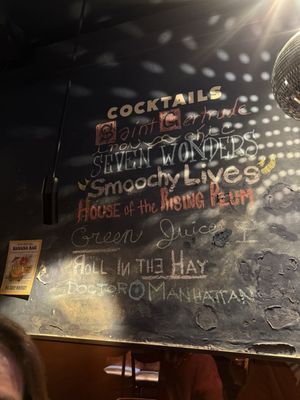 COCKTAILS
Saint Gertrude
SEVEN WONDERS
"Smoochy Lives"
HOUSE of the RISING PLUM
Green Juice
ROLL IN THE HAY
DOCTOR MANHATTAN